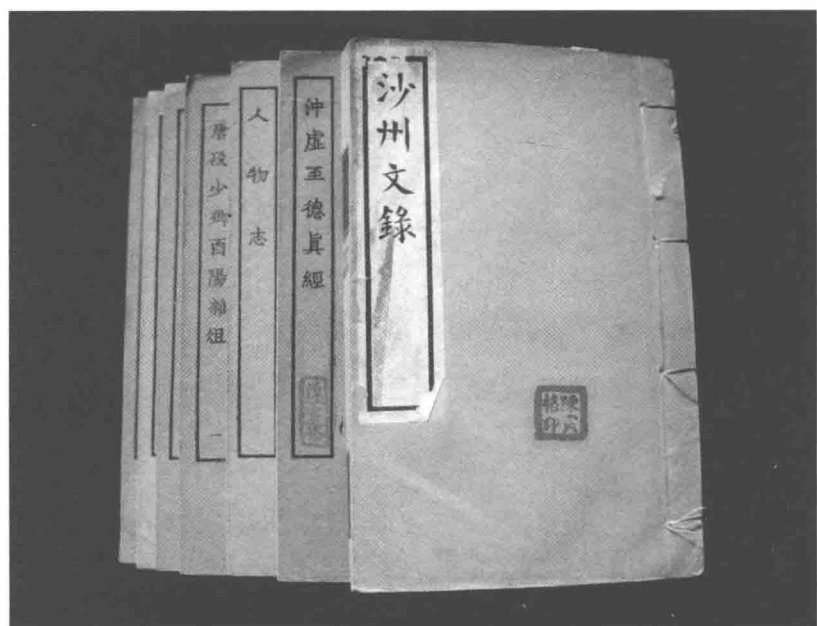 沙州文錄
沖虛至德眞經
人物志
唐段少卿酉陽雜俎 一